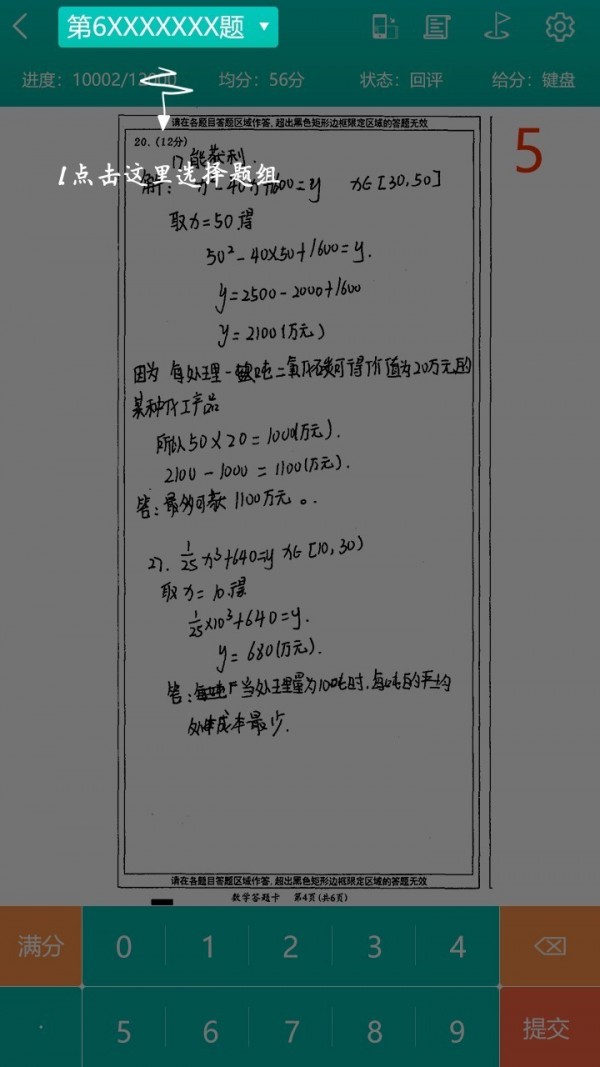 第6XXXXXXX题
进度：10002/12000 均分：56分 状态：回评 给分：键盘
请在各题目答题区域作答,超出黑色矩形边框限定区域的答题无效
5
20.（12分）
1).能获利.
1点击这里选择题组
解: x²-40x+1600=y x∈[30,50]
取x=50.得
50²-40×50+1600=y.
y=2500-2000+1600
y=2100(万元)
因为 每处理一吨二氧化碳可得价值为20万元的
某种化工产品
所以50×20=1000(万元).
2100-1000=1100(万元).
答:最多可获1100万元。.
2). 1/25 x³+640=y x∈[10,30)
取x=10.得
1/25×10³+640=y.
y=680(万元).
答: 当处理量为10吨时,每吨的平均
成本最少.
请在各题目答题区域作答,超出黑色矩形边框限定区域的答题无效
数学答题卡 第4页(共6页)
满分 0 1 2 3 4
. 5 6 7 8 9 提交